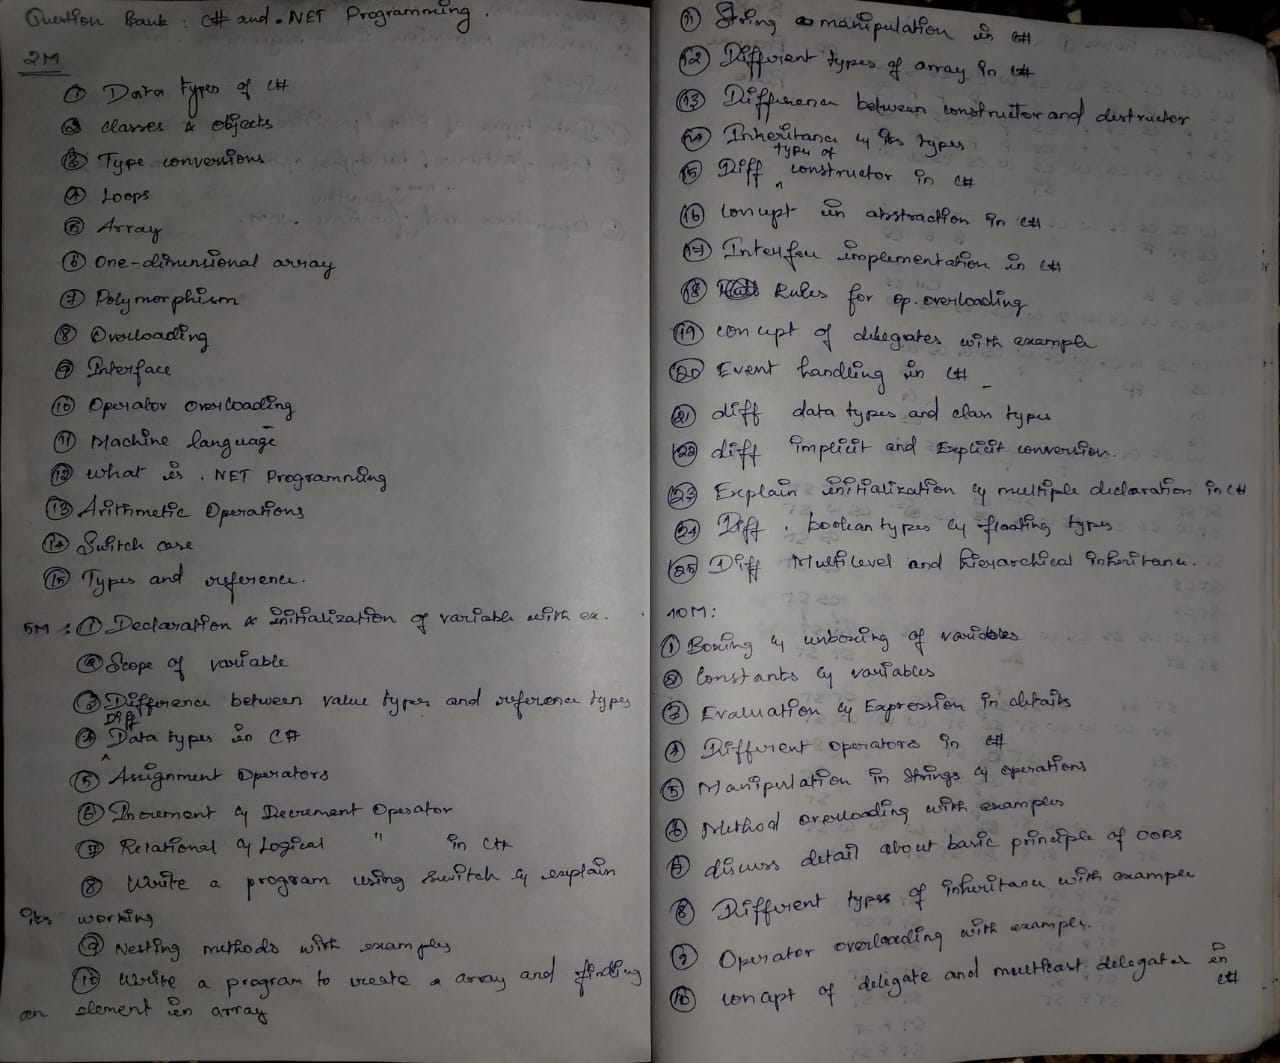 Question Bank : C# and .NET Programming.
2M
① Data types of C#
② classes & objects
③ Type conversions
④ Loops
⑤ Array
⑥ One-dimensional array
⑦ Polymorphism
⑧ Overloading
⑨ Interface
⑩ Operator overloading
⑪ Machine language
⑫ what is .NET Programming
⑬ Arithmetic Operations
⑭ Switch case
⑮ Types and reference.
5M : ① Declaration & initialization of variable with ex.
② Scope of variable
③ Difference between value types and reference types
④ Diff Data types in C#
⑤ Assignment Operators
⑥ Increment & Decrement Operator
⑦ Relational & Logical " in C#
⑧ Write a program using switch & explain
its working
⑨ Nesting methods with examples
⑩ Write a program to create a array and finding
an element in array
⑪ String manipulation in C#
⑫ Different types of array in C#
⑬ Difference between constructor and distructor
⑭ Inheritance & its types
⑮ Diff type of constructor in C#
⑯ Concept in abstraction in C#.
⑰ Interface implementation in C#
⑱ Rules for op. overloading
⑲ concept of delegates with example
⑳ Event handling in C#
㉑ diff data types and class types
㉒ diff implicit and Explicit conversion.
㉓ Explain initialization & multiple declaration in C#
㉔ Diff . boolean types & floating types
㉕ Diff Multilevel and hierarchical inheritance.
10M :
① Boxing & unboxing of variables
② Constants & variables
③ Evaluation & Expression in details
④ Different Operators in C#
⑤ Manipulation in Strings & operations
⑥ Method overloading with examples
⑦ discuss detail about basic principle of OOPS
⑧ Different types of inheritance with example
⑨ Operator overloading with examples.
⑩ concept of delegate and multicast delegates in
C#